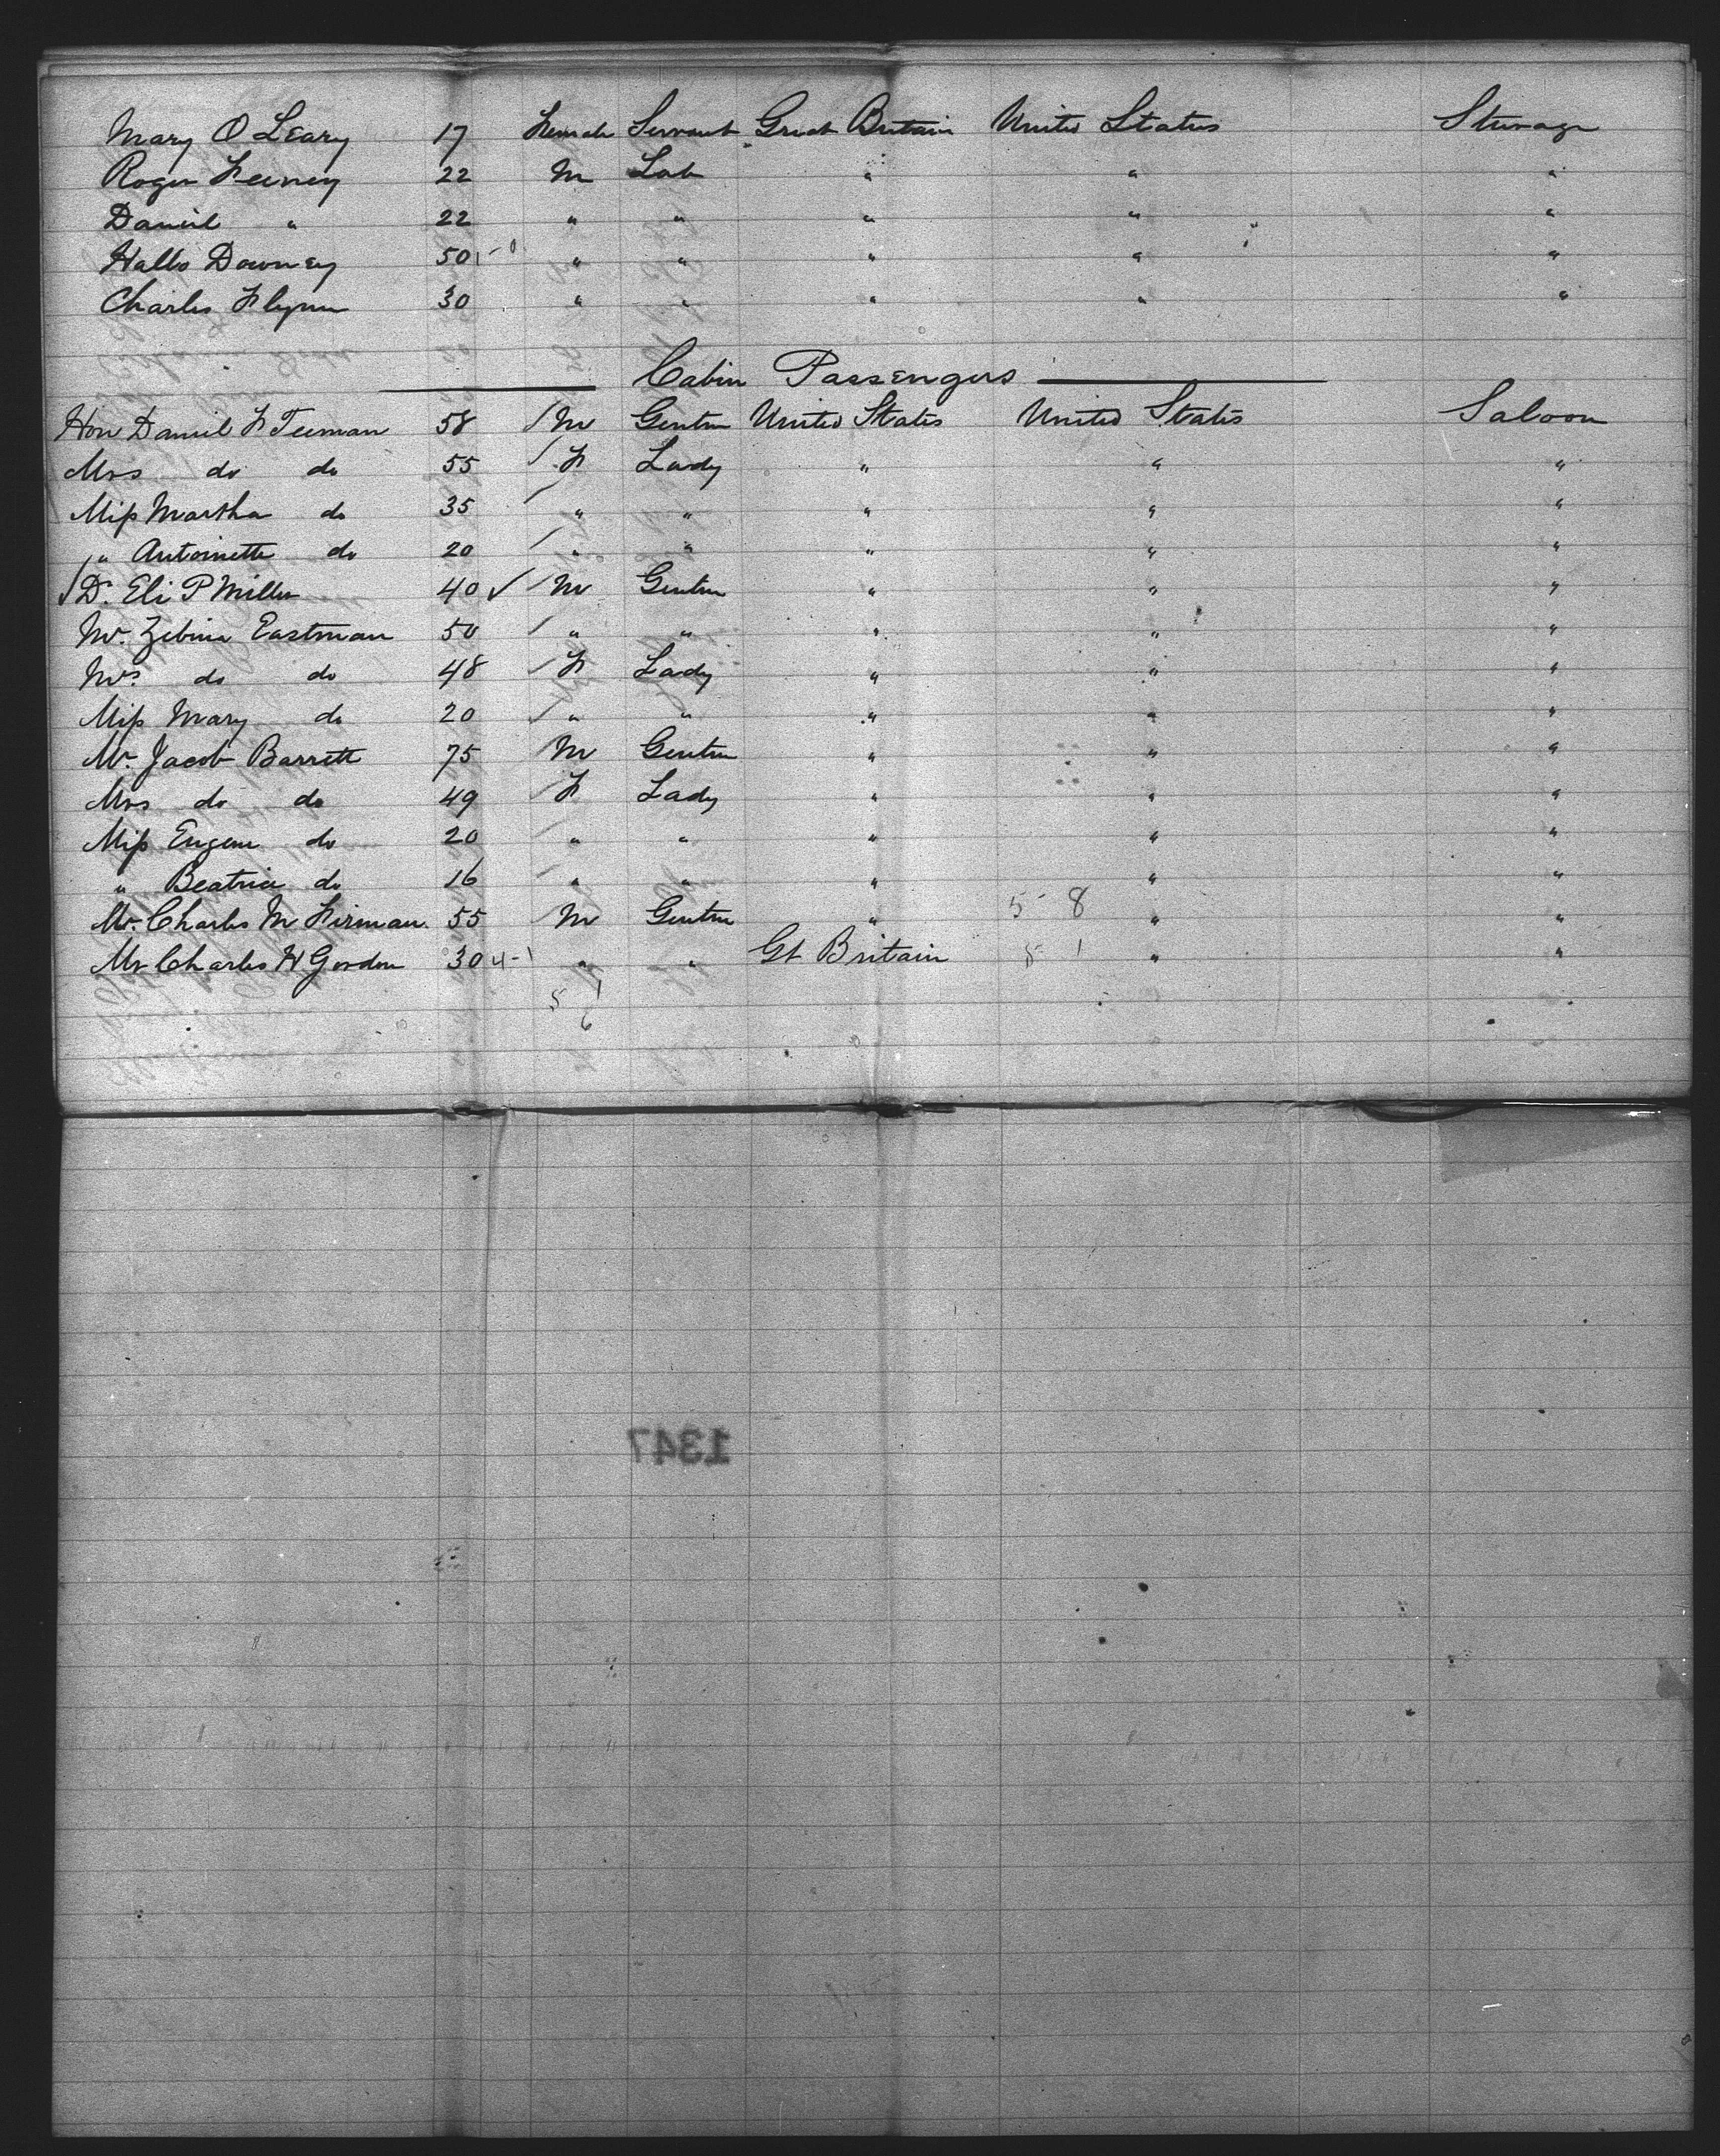 Mary O Leary 17 Female Servant Great Britain United States Steerage
Roger Feeney 22 M Lab " " "
Daniel " 22 " " " " "
Downey 50 " " " " "
Charles Flynn 30 " " " " "
Cabin Passengers
Hon Daniel F Tieman 58 M Gentm United States United States Saloon
Mrs do do 55 F Lady " " "
Miss Martha do 35 " " " " "
" Antoinette do 20 " " " " "
Dr. Eli P Miller 40 M Gentm " " "
Mr. Zebina Eastman 50 " " " " "
Mrs. do do 48 F Lady " " "
Miss Mary do 20 " " " " "
Mr. Jacob Barrett 75 M Gentm " " "
Mrs do do 49 F Lady " " "
Miss Eugene do 20 " " " " "
" Beatrice do 16 " " " " "
Mr. Charles M Firman 55 M Gentm " 5 - 8 " "
Mr Charles H Gordon 30 4-1 " " Gt Britain 5 1 " "
5 1
6
1347